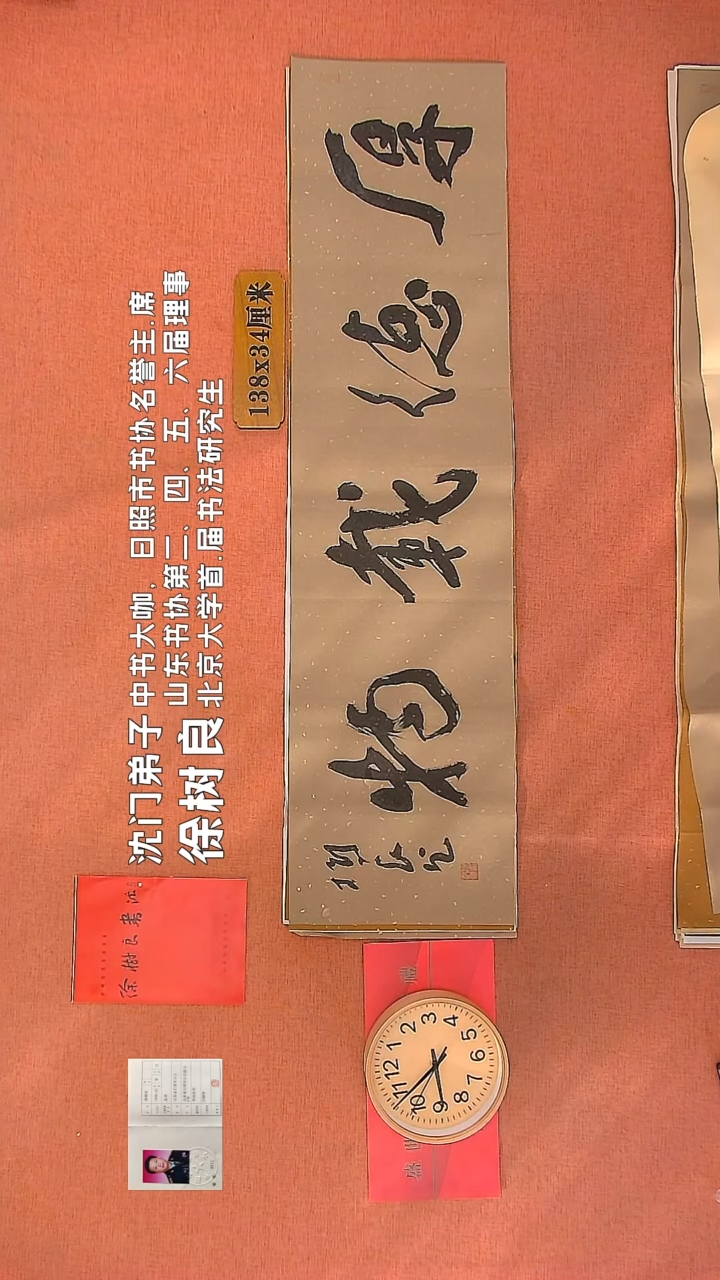 沈门弟子
徐树良
中书大咖,日照市书协名誉主.席
山东书协第二、四、五、六届理事
北京大学首.届书法研究生
138x34厘米
厚德载物
徐树良书法
盛世
12
1
2
3
4
5
6
7
8
9
10
11